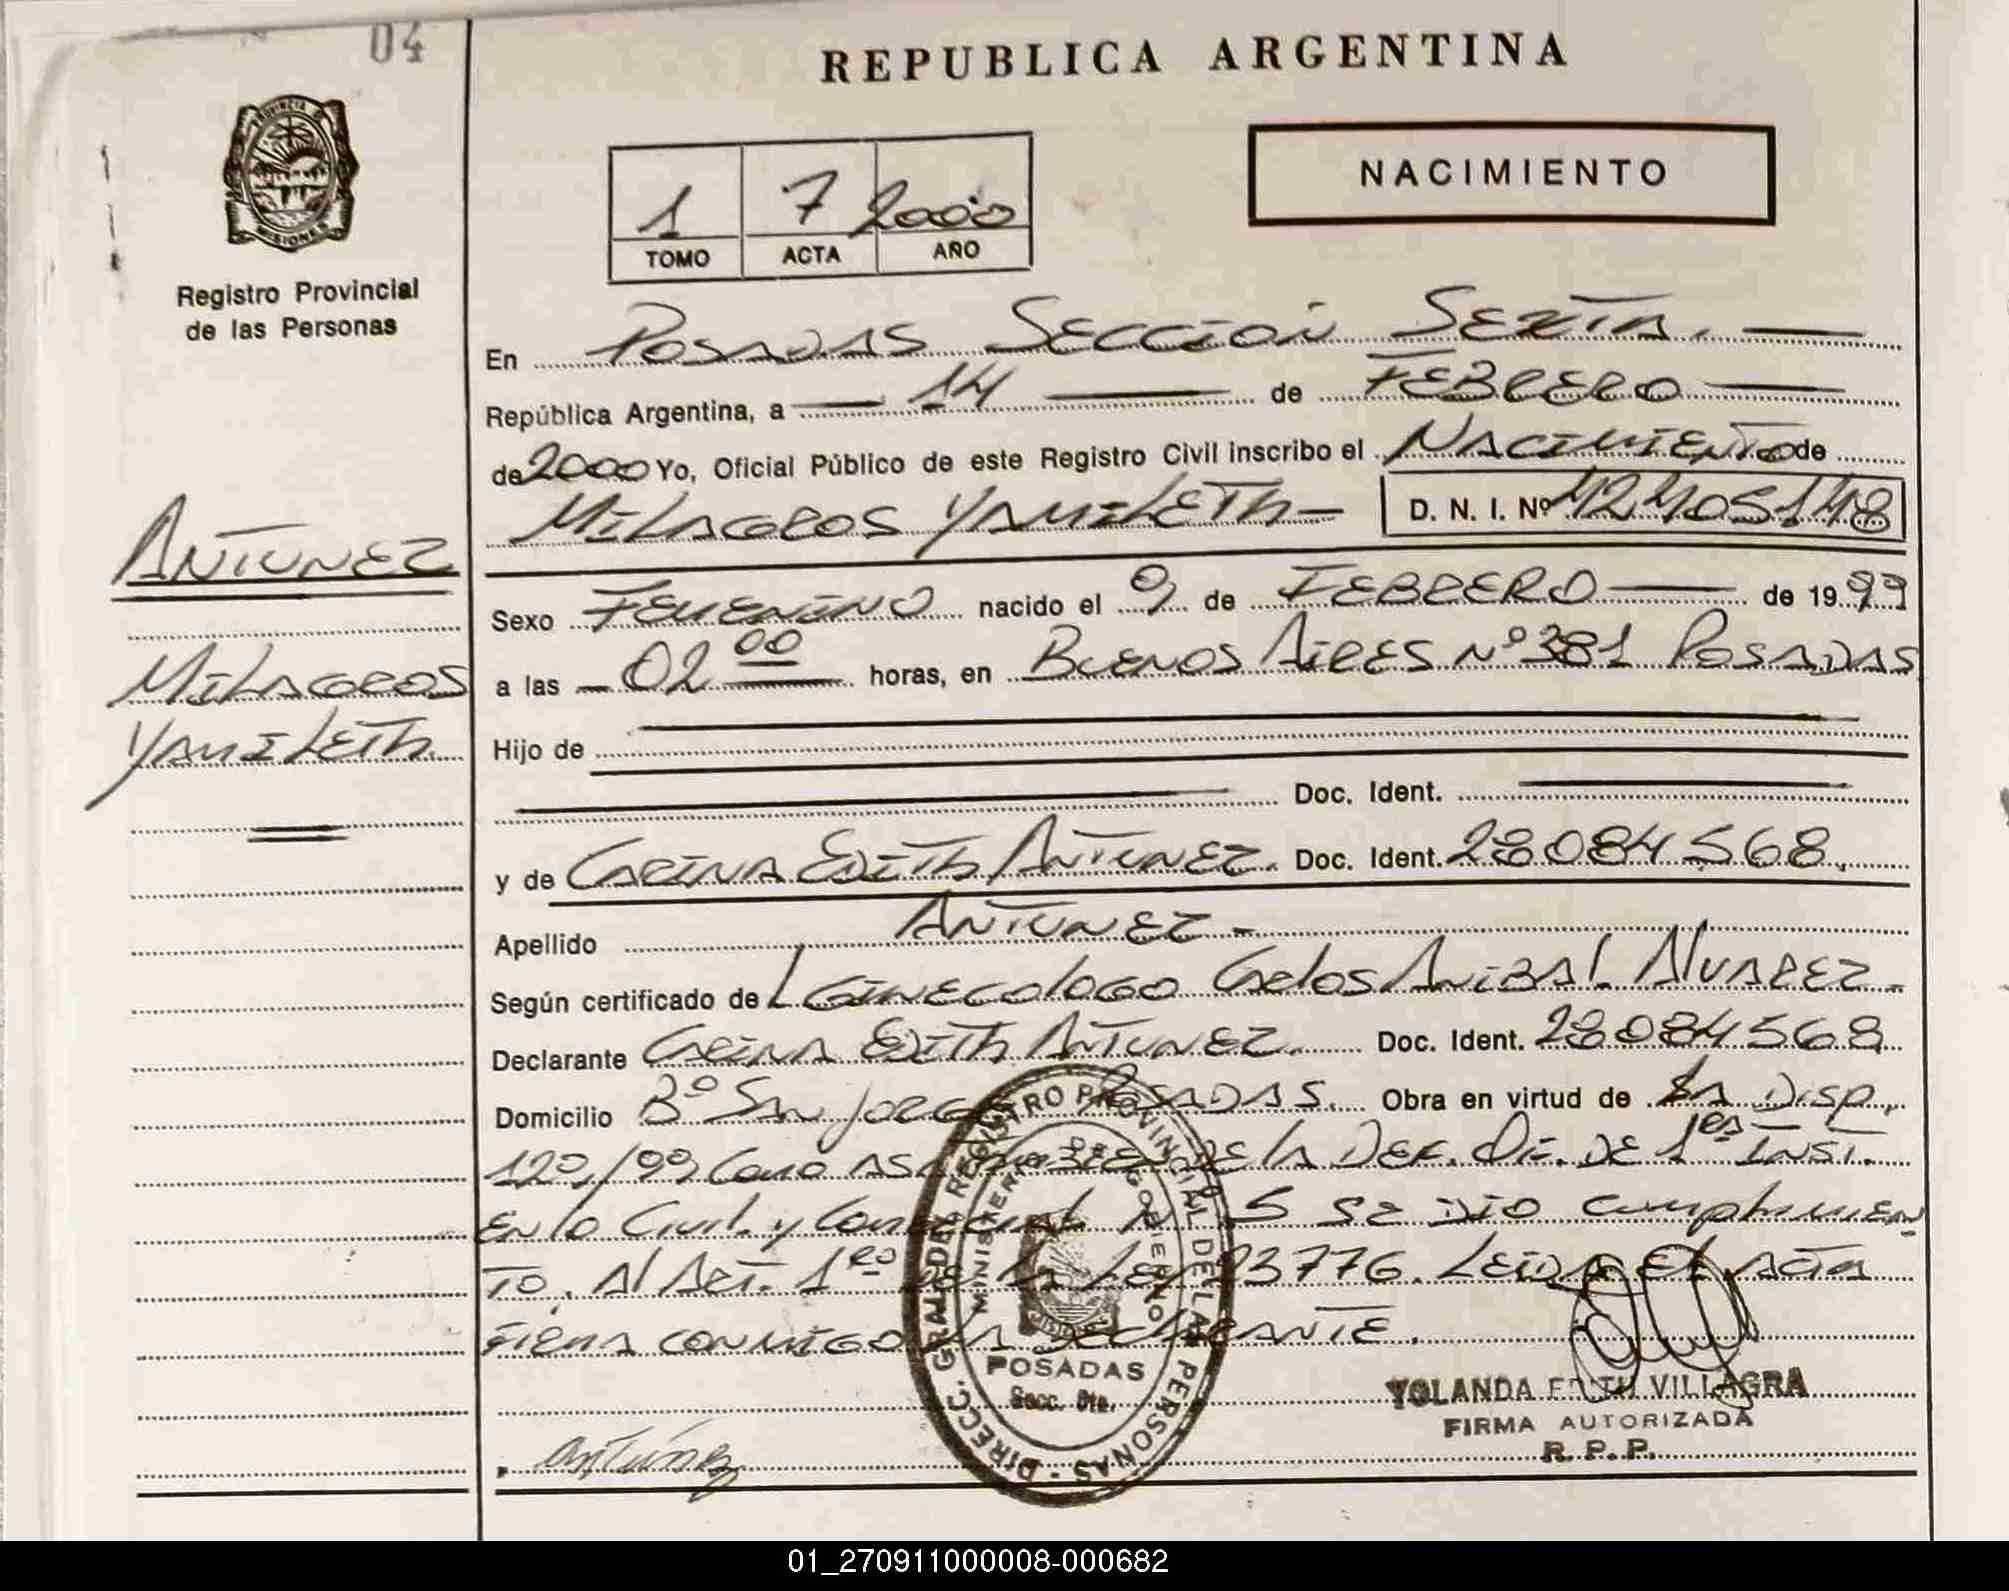 04
REPUBLICA ARGENTINA
NACIMIENTO
1 7 2000
TOMO ACTA AÑO
PROVINCIA DE
MISIONES
Registro Provincial
de las Personas
En POSADAS SECCION SEXTA.
República Argentina, a 14 de FEBRERO
de 2000 Yo, Oficial Público de este Registro Civil inscribo el NACIMIENTO de
MILAGROS YAMILETH D. N. I. Nº 42405148
ANTUNEZ
MILAGROS
YAMILETH
Sexo FEMENINO nacido el 9 de FEBRERO de 1999
a las 02 00 horas, en BUENOS AIRES Nº 381 POSADAS
Hijo de
Doc. Ident.
y de CARINA EDITH ANTUNEZ. Doc. Ident. 28084568.
Apellido ANTUNEZ-
Según certificado de L GINECOLOGO CARLOS ANIBAL ALVAREZ.
Declarante CARINA EDITH ANTUNEZ. Doc. Ident. 28084568
Domicilio Bº SAN JORGE POSADAS. Obra en virtud de LA DISP.
120/99, COMO ASI DE LA DEF. OF. DE 1ra INST.
EN LO CIVIL Y COMERCIAL Nº 5 SE DIO CUMPLIMIEN
TO. AL ART. 1ro DE LA LEY 23776. LEIDA EL ACTA
FIRMA CONMIGO LA DECLARANTE.
DIRECC. GRAL. DEL REGISTRO PROVINCIAL DE LAS PERSONAS -
MINISTERIO DE GOBIERNO
POSADAS
Secc. 6ta.
YOLANDA EDITH VILLAGRA
FIRMA AUTORIZADA
R. P. P.
Antunez
01_270911000008-000682